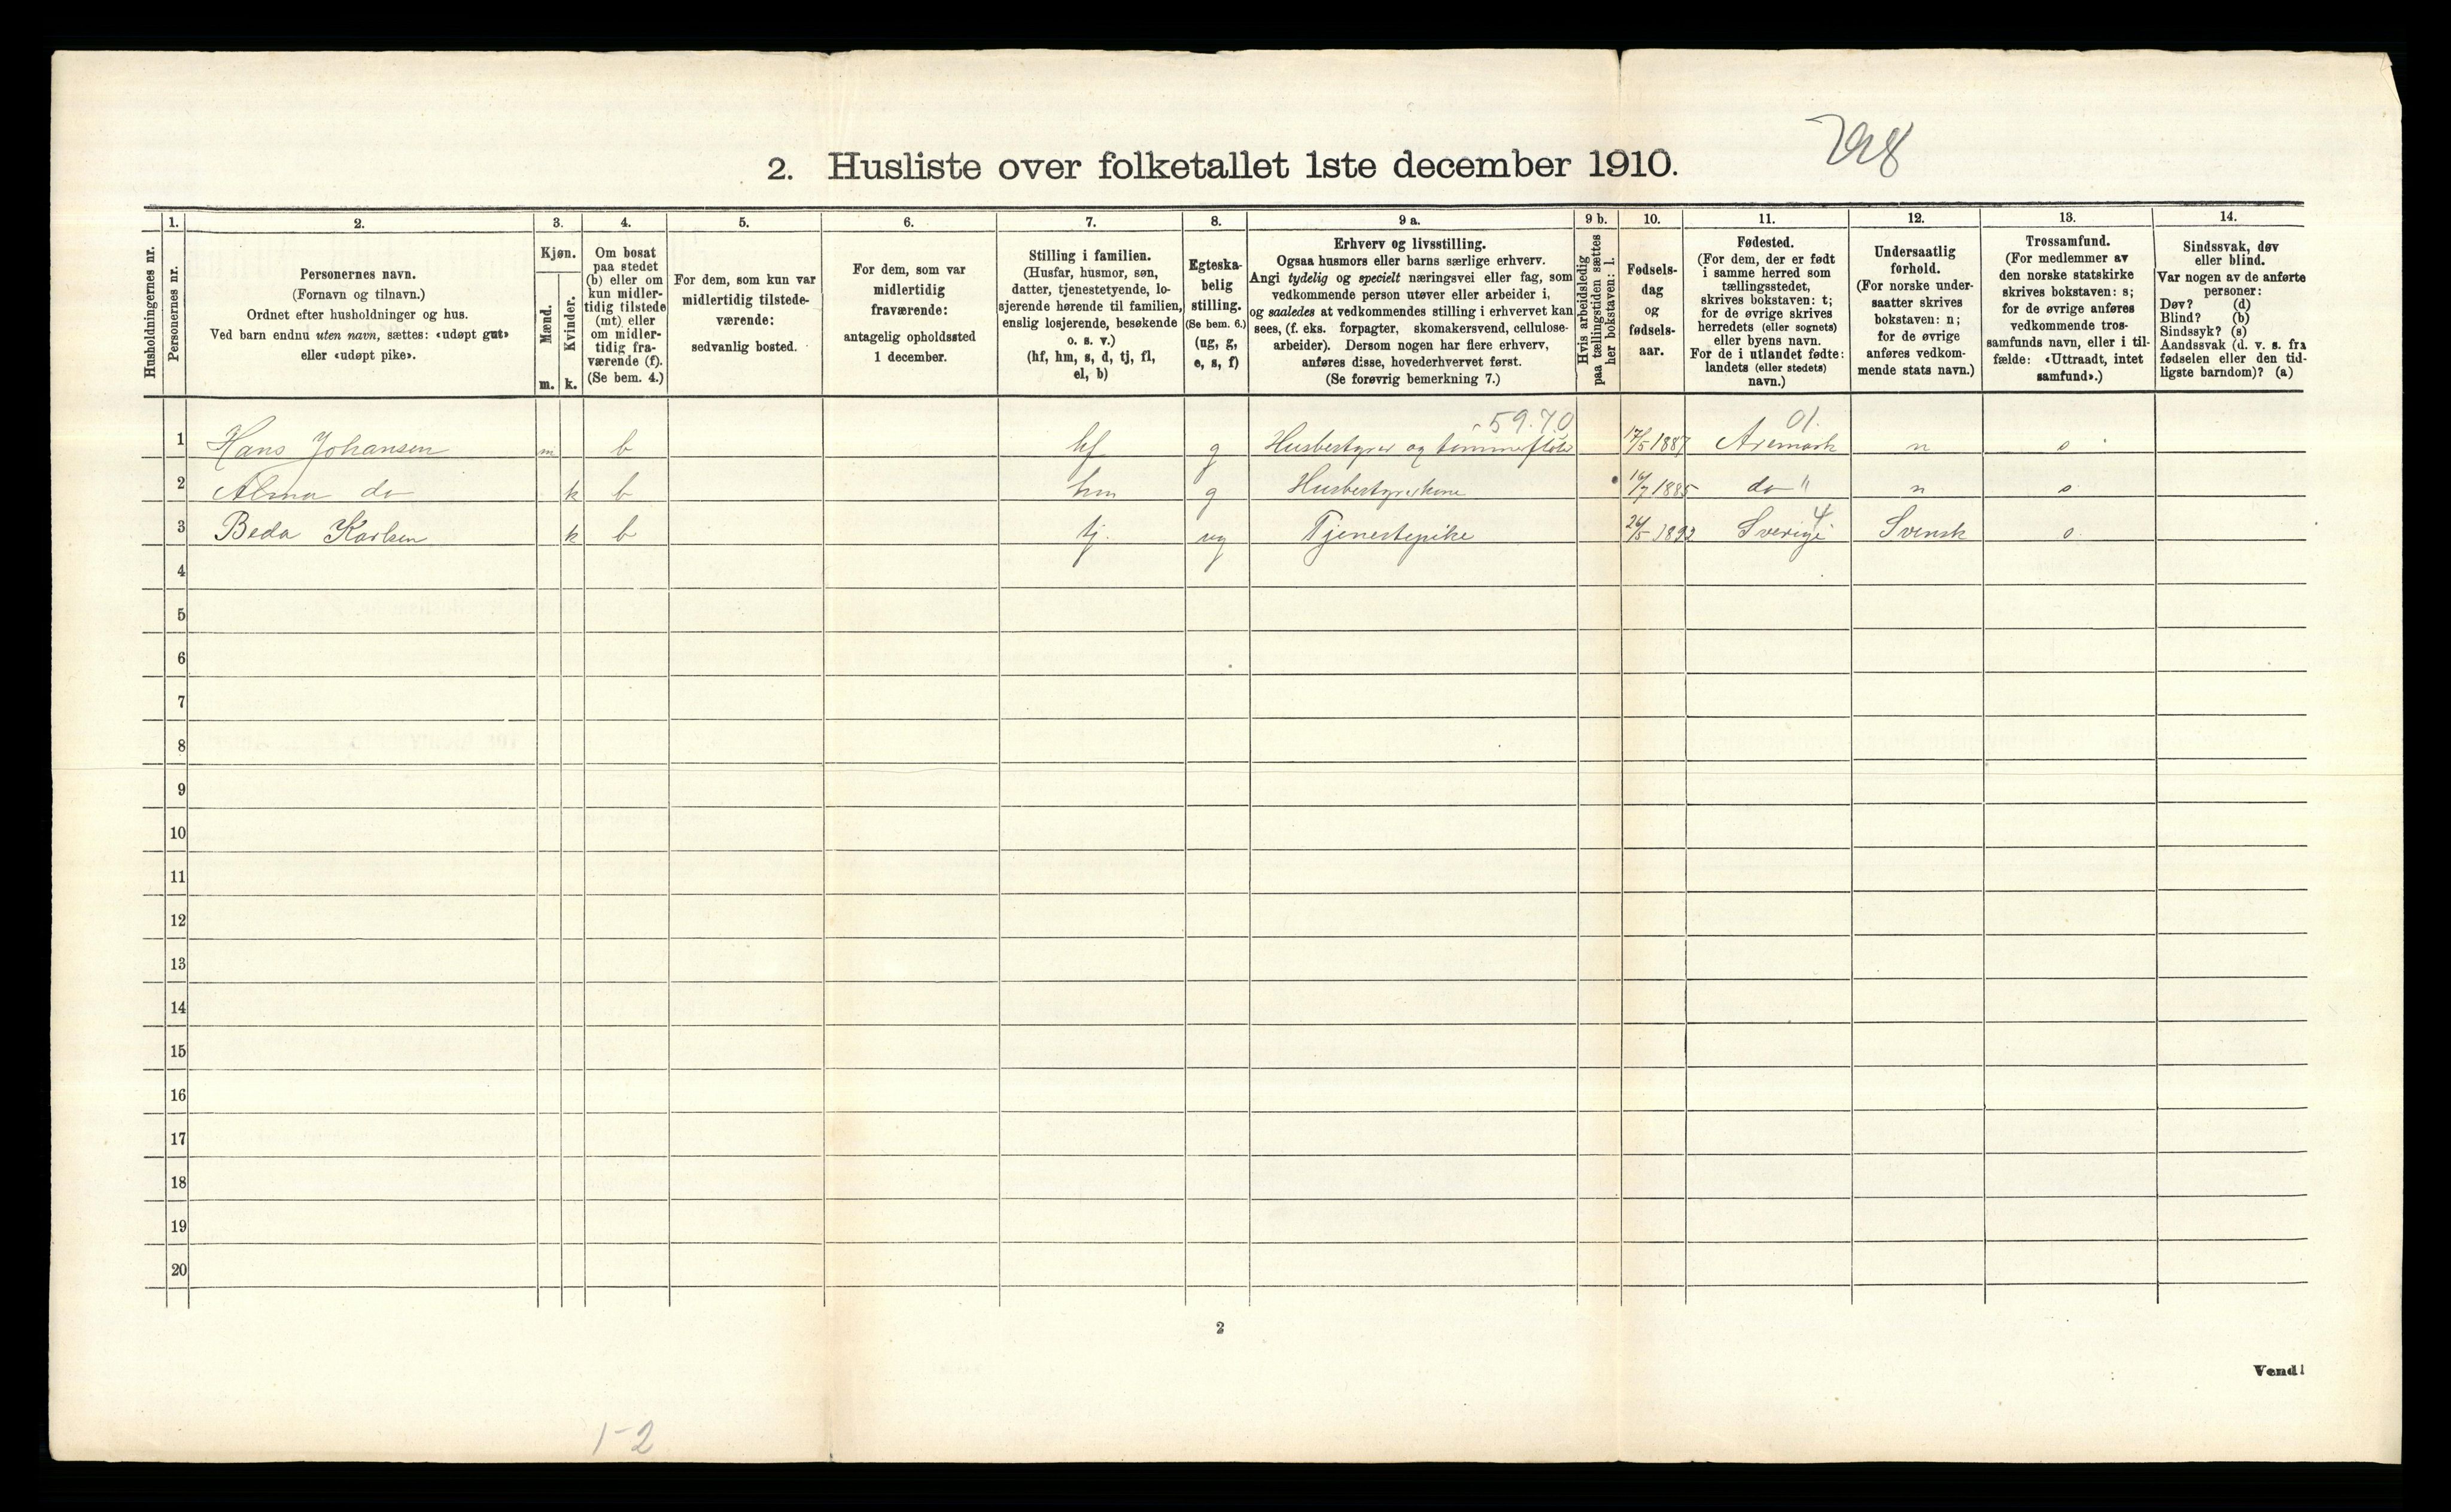 2. Husliste over folketallet 1ste december 1910.
Husholdningernes nr.
1. Personernes nr.
2. Personernes navn.
(Fornavn og tilnavn.)
Ordnet efter husholdninger og hus.
Ved barn endnu uten navn, sættes: «udøpt gut»
eller «udøpt pike».
3. Kjøn.
Mænd. m.
Kvinder. k.
4. Om bosat
paa stedet
(b) eller om
kun midler-
tidig tilstede
(mt) eller
om midler-
tidig fra-
værende (f).
(Se bem. 4.)
5. For dem, som kun var
midlertidig tilstede-
værende:
sedvanlig bosted.
6. For dem, som var
midlertidig
fraværende:
antagelig opholdssted
1 december.
7. Stilling i familien.
(Husfar, husmor, søn,
datter, tjenestetyende, lo-
sjerende hørende til familien,
enslig losjerende, besøkende
o. s. v.)
(hf, hm, s, d, tj, fl,
el, b)
8. Egteska-
belig
stilling.
(Se bem. 6.)
(ug, g,
e, s, f)
9 a. Erhverv og livsstilling.
Ogsaa husmors eller barns særlige erhverv.
Angi tydelig og specielt næringsvei eller fag, som
vedkommende person utøver eller arbeider i,
og saaledes at vedkommendes stilling i erhvervet kan
sees, (f. eks. forpagter, skomakersvend, cellulose-
arbeider). Dersom nogen har flere erhverv,
anføres disse, hovederhvervet først.
(Se forøvrig bemerkning 7.)
9 b. Hvis arbeidsledig
paa tællingstiden sættes
her bokstaven: l.
10. Fødsels-
dag
og
fødsels-
aar.
11. Fødested.
(For dem, der er født
i samme herred som
tællingsstedet,
skrives bokstaven: t;
for de øvrige skrives
herredets (eller sognets)
eller byens navn.
For de i utlandet fødte:
landets (eller stedets)
navn.)
12. Undersaatlig
forhold.
(For norske under-
saatter skrives
bokstaven: n;
for de øvrige
anføres vedkom-
mende stats navn.)
13. Trossamfund.
(For medlemmer av
den norske statskirke
skrives bokstaven: s;
for de øvrige anføres
vedkommende tros-
samfunds navn, eller i til-
fælde: «Uttraadt, intet
samfund».)
14. Sindssvak, døv
eller blind.
Var nogen av de anførte
personer:
Døv? (d)
Blind? (b)
Sindssyk? (s)
Aandssvak (d. v. s. fra
fødselen eller den tid-
ligste barndom)? (a)
59.70 01.
1 Hans Johansen m b hf g Husbestyrer og tømmerfløter 17/5 1887 Aremark n s
2 Alma do k b hm g Husbestyrerkone 16/7 1885 do " n s
4
3 Beda Karlsen k b tj. ug Tjenestepike 26/5 1893 Sverige Svensk s.
4
5
6
7
8
9
10
11
12
13
14
15
16
17
18
19
20
2
Vend!
1-2